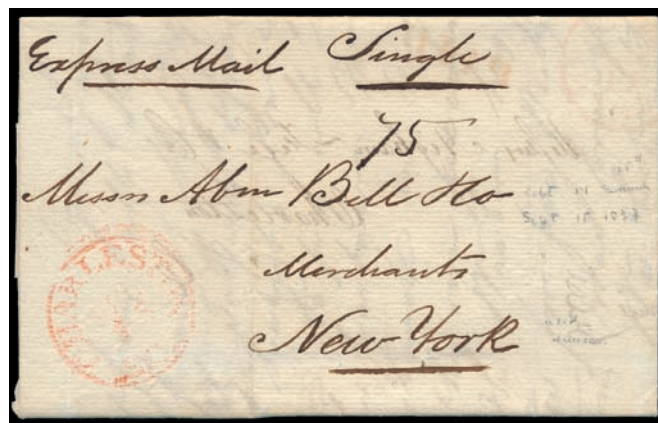 Express Mail Single
75
Messrs Abm Bell & Co
Merchants
New York
CHARLESTON